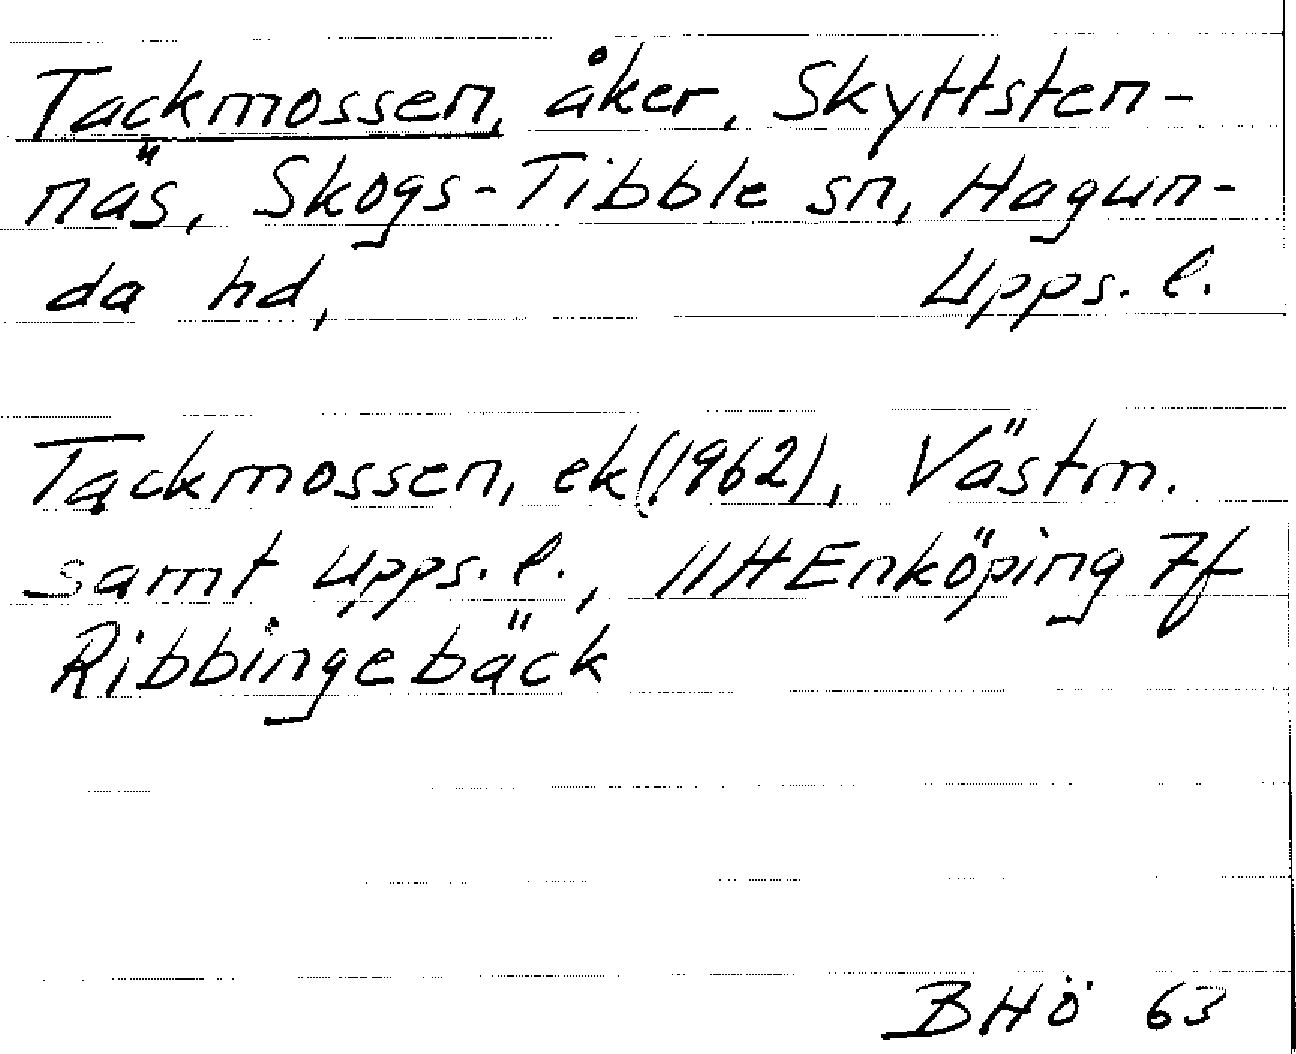 Tackmossen, åker, Skyttsten-
näs, Skogs-Tibble sn, Hagun-
da hd, Upps. l.
Tackmossen, ek (1962), Västm.
samt Upps. l., 11H Enköping 7f
Ribbingebäck
BHö 63